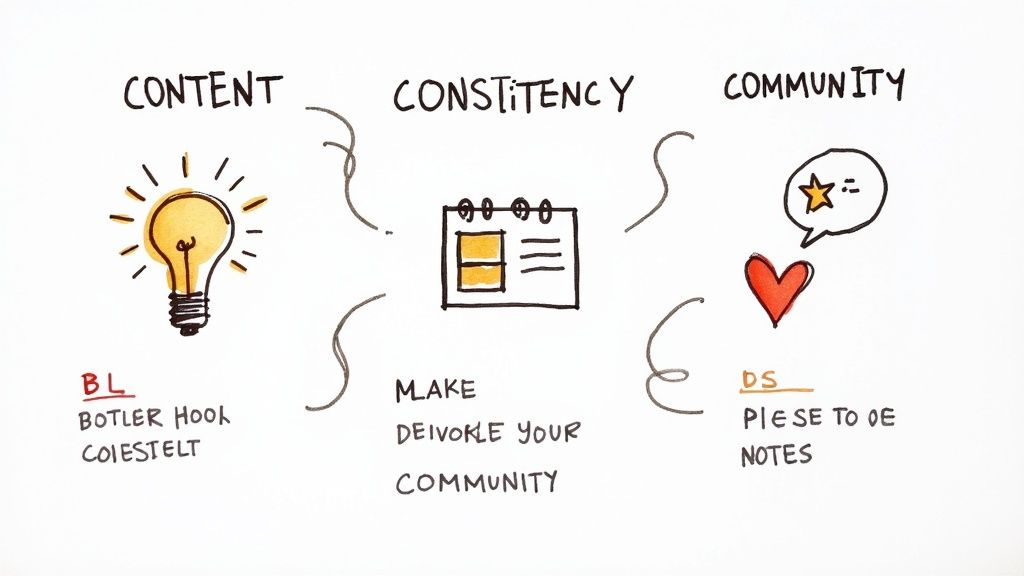 CONTENT
CONSTITENCY
COMMUNITY
BL
BOTLER HOOK
COIESTELT
MLAKE
DEIVOKLE YOUR
COMMUNITY
DS
PIESE TO OE
NOTES